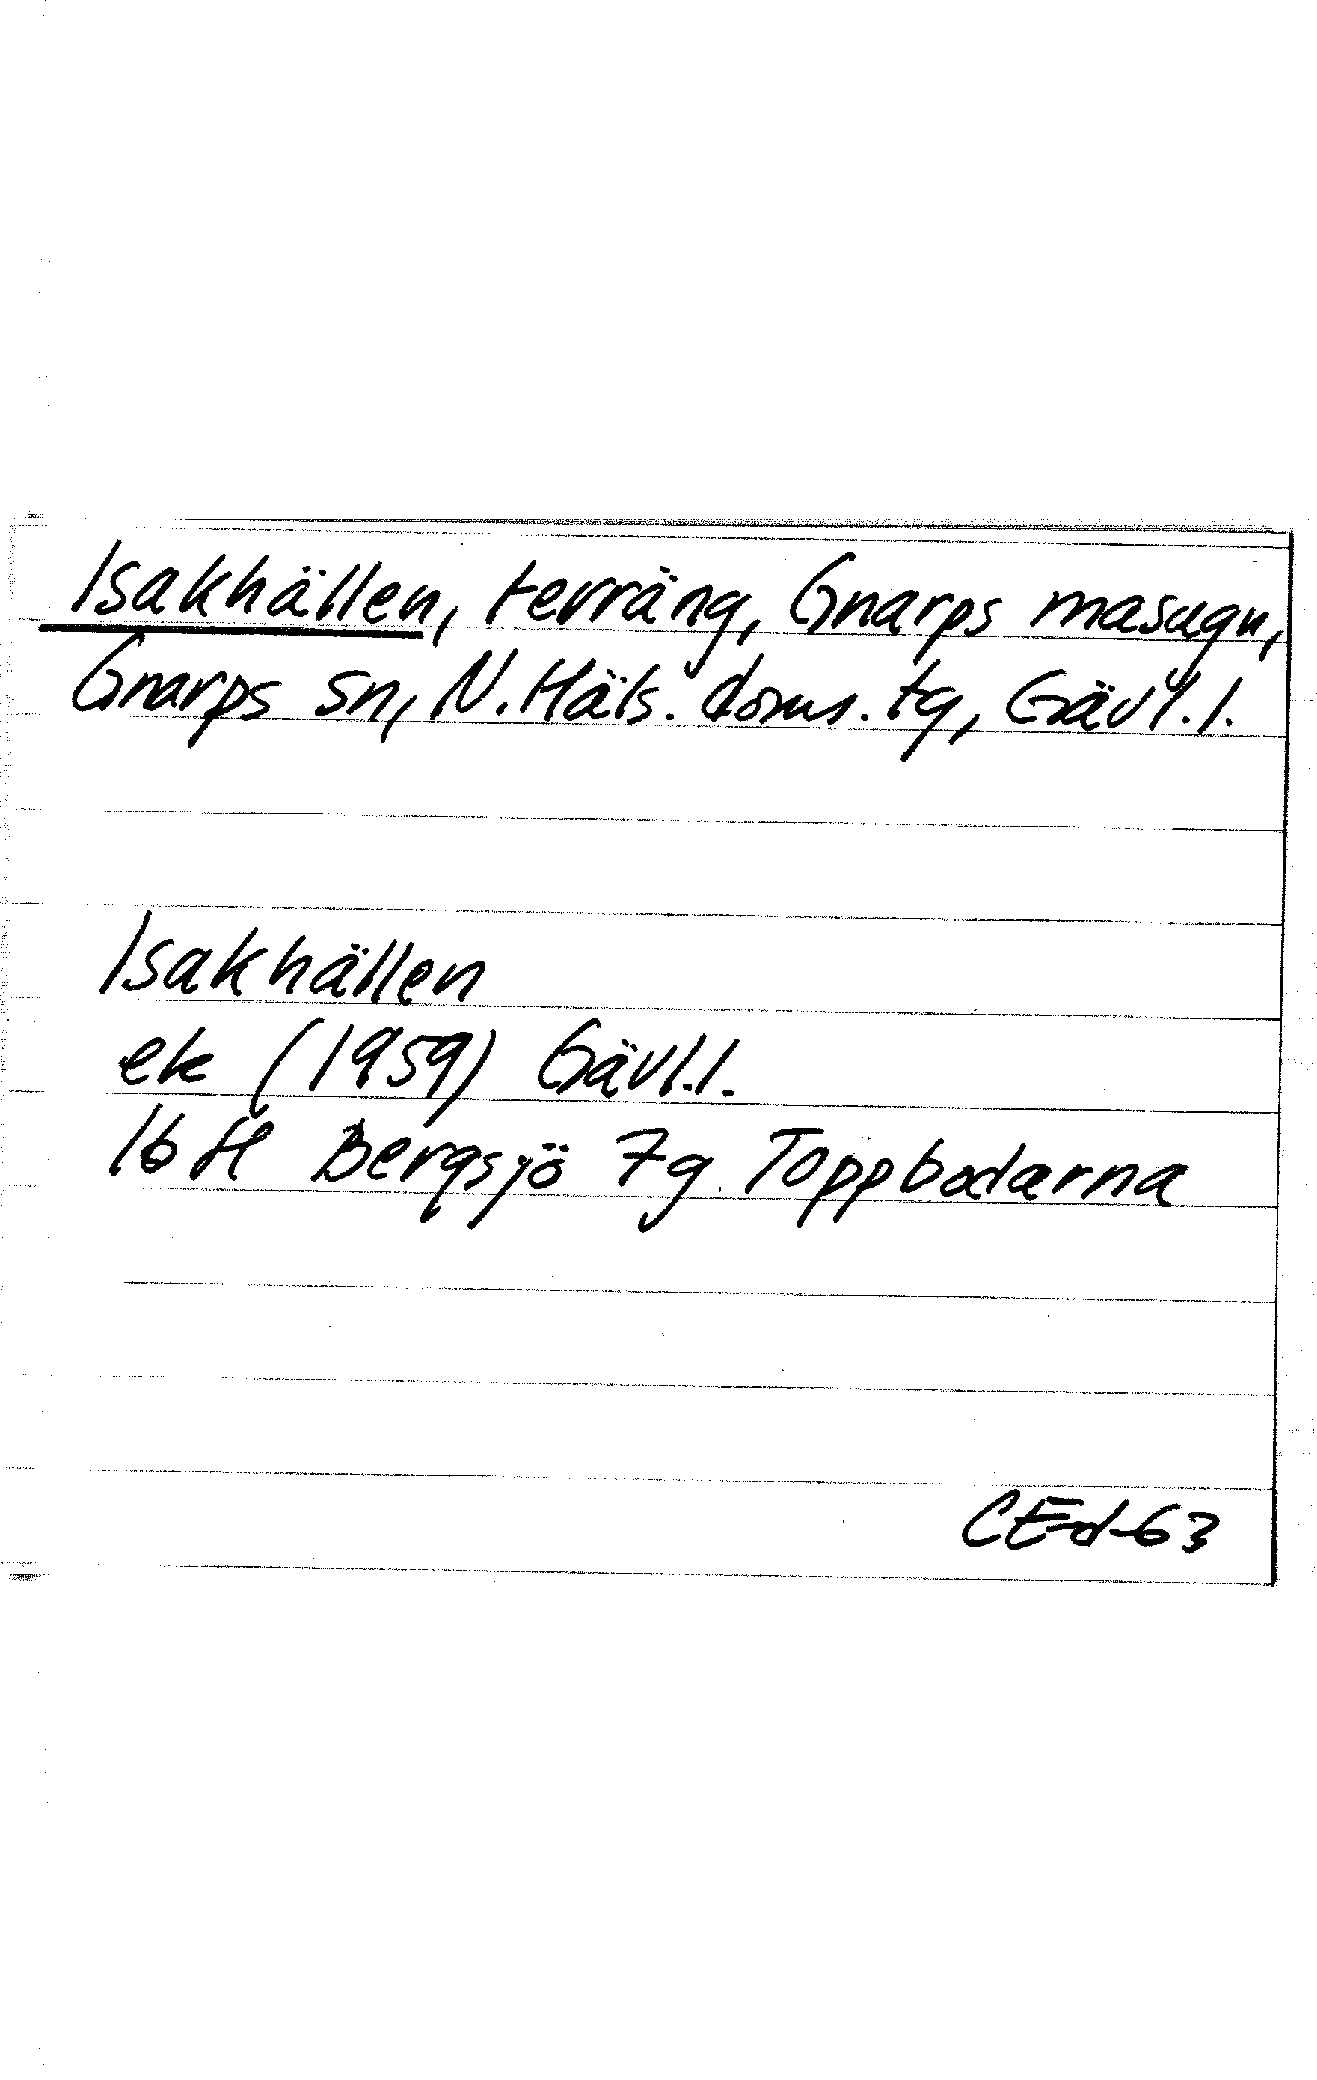 Isakhällen, terräng, Gnarps masugn,
Gnarps sn, N. Häls. doms. tg, Gävl. l.
Isakhällen
ek (1959) Gävl. l.
16 H Bergsjö 7g Toppbodarna
CEd-63